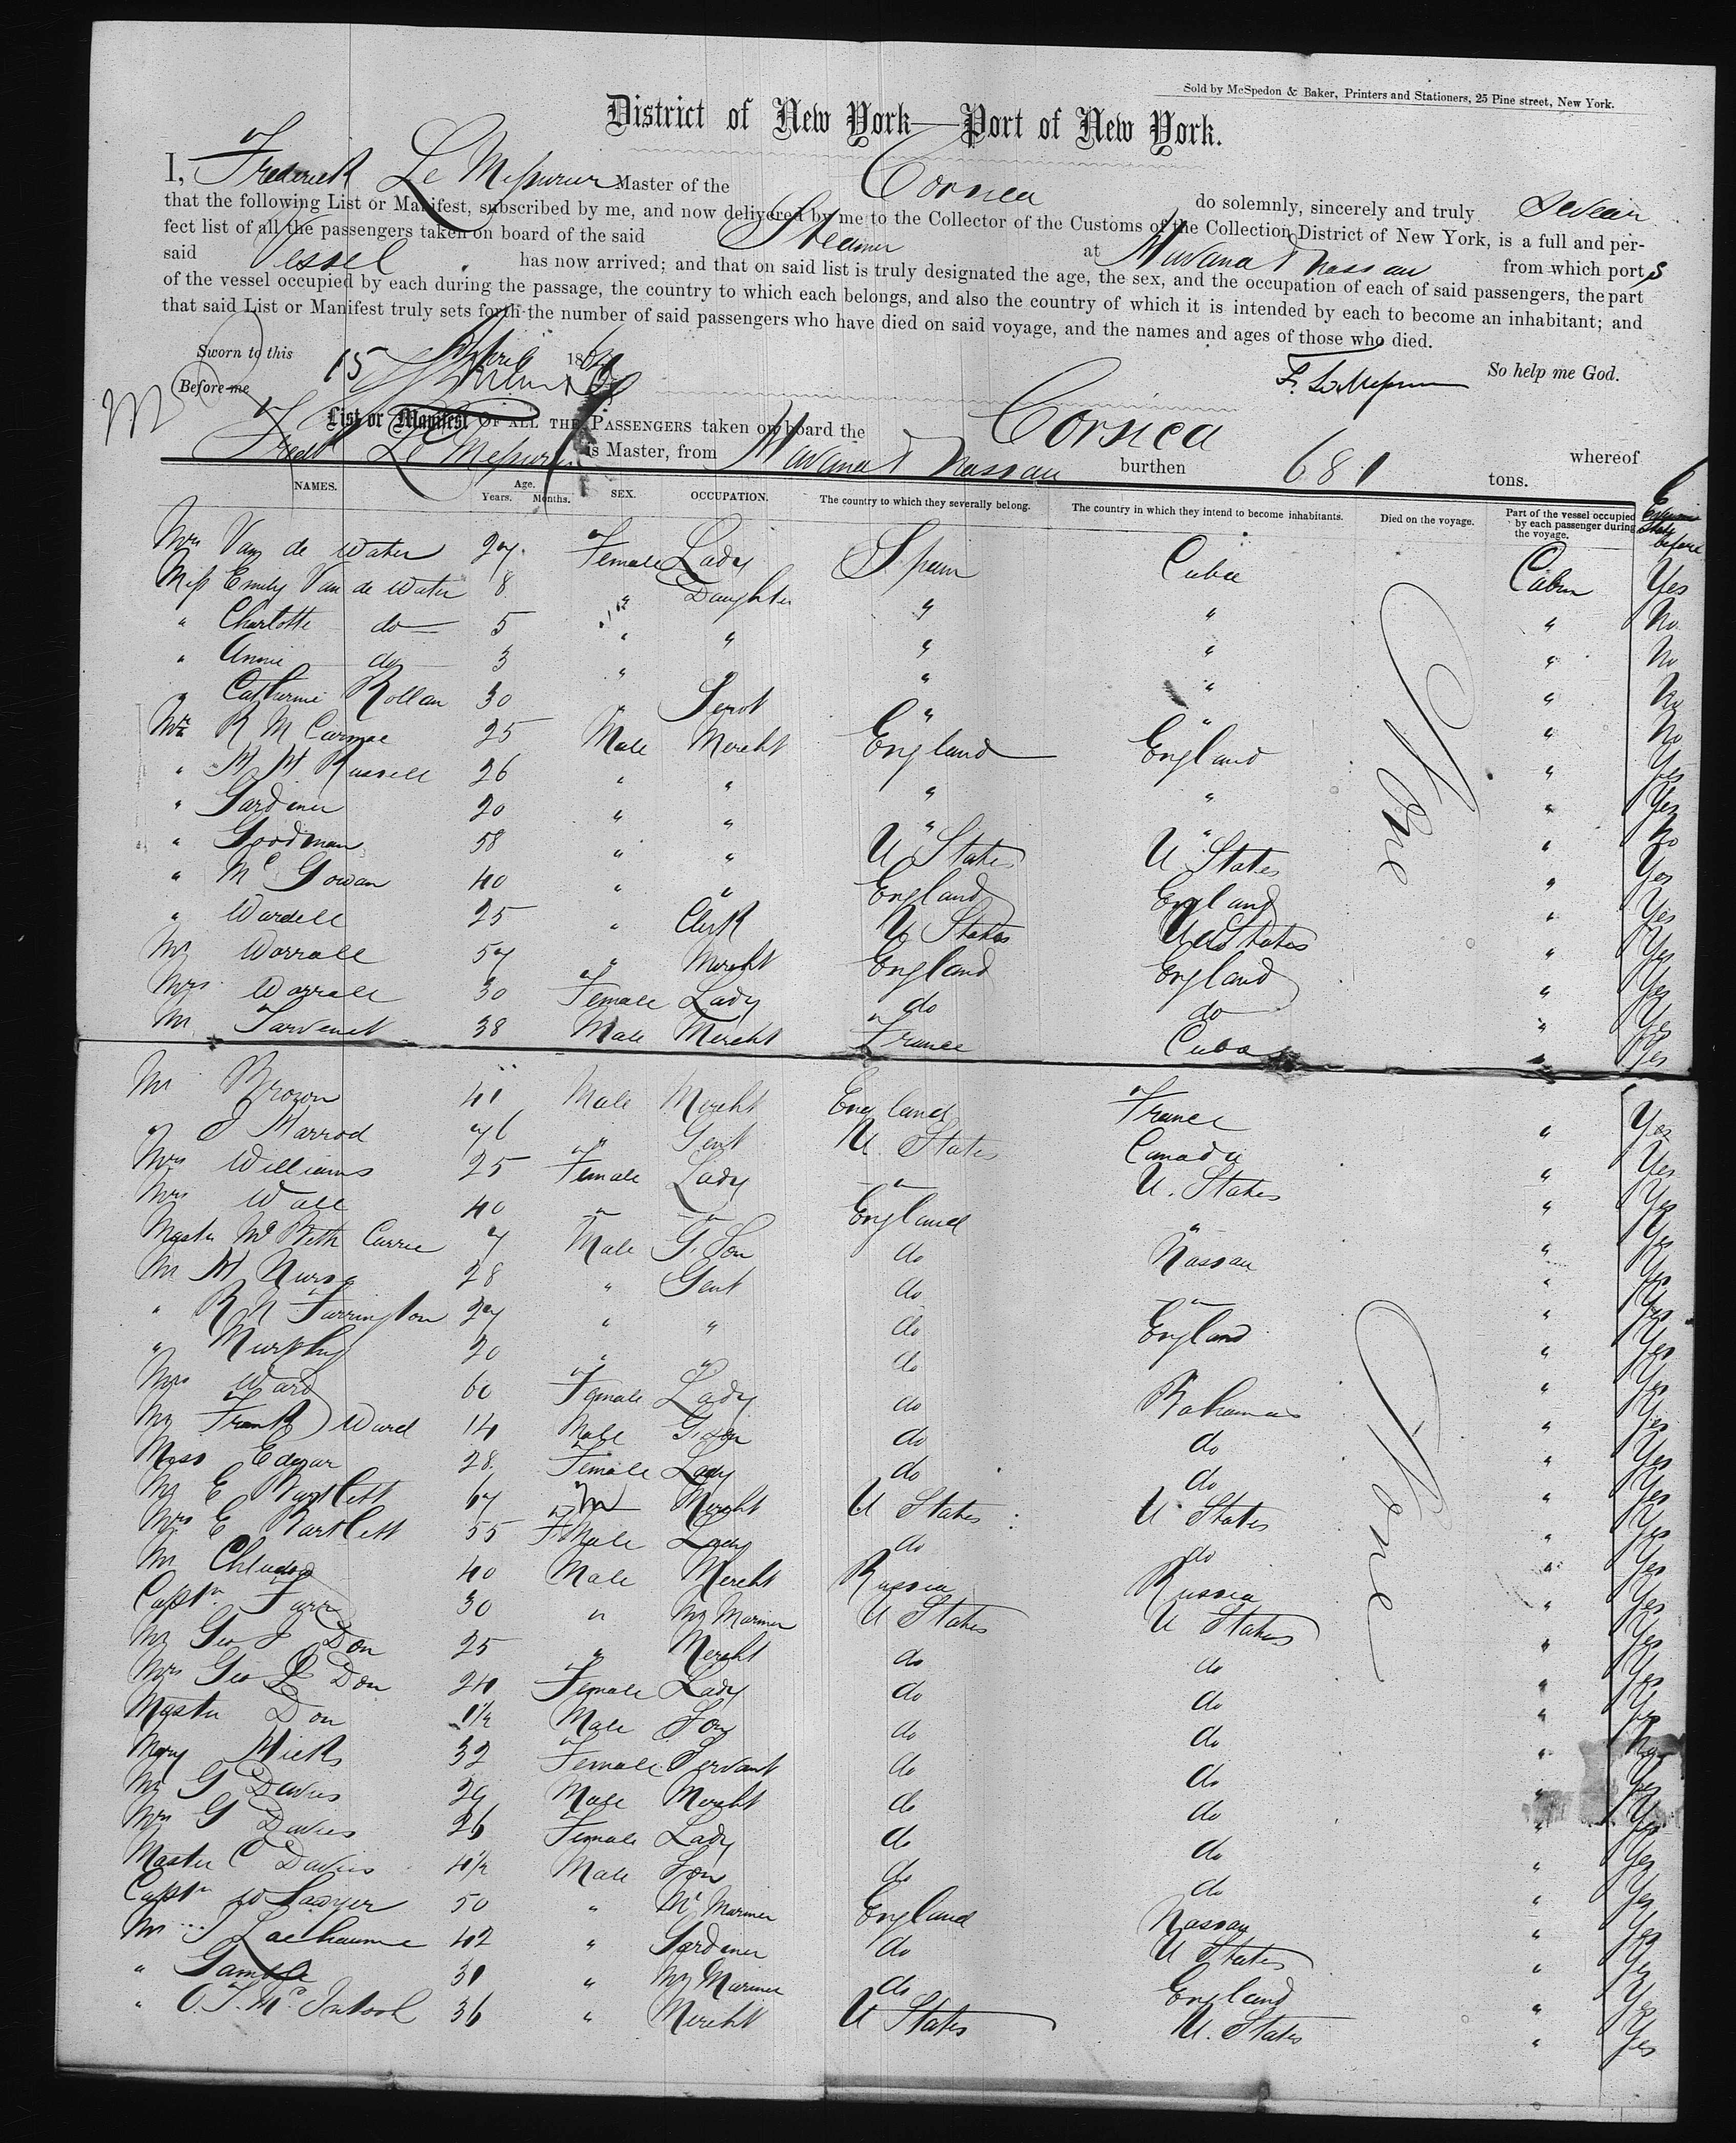 Sold by McSpedon & Baker, Printers and Stationers, 25 Pine street, New York.
District of New York—Port of New York.
I, Frederick Le Mesurier Master of the Corsica do solemnly, sincerely and truly Swear
that the following List or Manifest, subscribed by me, and now delivered by me to the Collector of the Customs of the Collection District of New York, is a full and per-
fect list of all the passengers taken on board of the said Steamer at Havana & Nassau from which ports
said Vessel has now arrived; and that on said list is truly designated the age, the sex, and the occupation of each of said passengers, the part
of the vessel occupied by each during the passage, the country to which each belongs, and also the country of which it is intended by each to become an inhabitant; and
that said List or Manifest truly sets forth the number of said passengers who have died on said voyage, and the names and ages of those who died.
Sworn to this 15 April 186 So help me God.
Before me F. LeMesurier
List or Manifest OF ALL THE PASSENGERS taken on board the Corsica whereof
Fredk Le Mesurier is Master, from Havana & Nassau burthen 681 tons.
NAMES. Age. Years. Months. SEX. OCCUPATION. The country to which they severally belong. The country in which they intend to become inhabitants. Died on the voyage. Part of the vessel occupied by each passenger during the voyage. States before
Mrs Van de Water 27 Female Lady Spain Cuba Cabin Yes
Miss Emily Van de Water 8 " Daughter " " " No
" Charlotte do 5 " " " " " No
" Annie do 3 " " " " " No
" Catherine Rollan 30 " Servt " " " No
Mr R M Carmac 25 Male Mercht England England " Yes
" H H Russell 26 " " " " " Yes
" Gardener 20 " " " " " No
" Goodman 58 " " U States U States " Yes
" Mc Gowan 40 " " England England " Yes
" Wardell 25 " Clerk U States U States " Yes
Mr Worrall 57 " Mercht England England " Yes
Mrs Worrall 30 Female Lady do do " Yes
Mr Tarvenet 38 Male Mercht France Cuba " Yes
Mr Brozon 41 Male Mercht England France " Yes
" J Harrod 76 " Gent U. States Canada " Yes
Mrs Williams 25 Female Lady " U. States " Yes
Mrs Wall 40 " " England " " Yes
Master Mc Beth Currie 7 Male G. Son do Nassau " Yes
Mr H Nurse 28 " Gent do " " Yes
" R N Farrington 27 " " do England " Yes
" Murphy 20 " " do " Yes
Mrs Ward 60 Female Lady do Bahamas " Yes
Mr Frank Ward 14 Male G. Son do do " Yes
Miss Edgar 28 Female Lady do do " Yes
Mr E Bartlett 67 M Mercht U States U States " Yes
Mrs E Bartlett 55 FMale Lady do do " Yes
Mr 40 Male Mercht Russia Russia " Yes
Captn Farr 30 " Mr Mariner U States U States " Yes
Mr Geo J Don 25 " Mercht do do " Yes
Mrs Geo J Don 24 Female Lady do do " Yes
Master Don 1½ Male Son do do "
Mary Hicks 32 Female Servant do do " Yes
Mr G Davies 29 Male Mercht do do " Yes
Mrs G Davies 26 Female Lady do do " Yes
Master C Davies 4½ Male Son do do " Yes
Captn W Sawyer 50 " Mr Mariner England Nassau " Yes
Mr J Lachaume 42 " Gardener do U States " Yes
" Gamble 31 " Mr Mariner do England " Yes
" C. T. Mc Intosh 36 " Mercht U States U. States " Yes
None
None